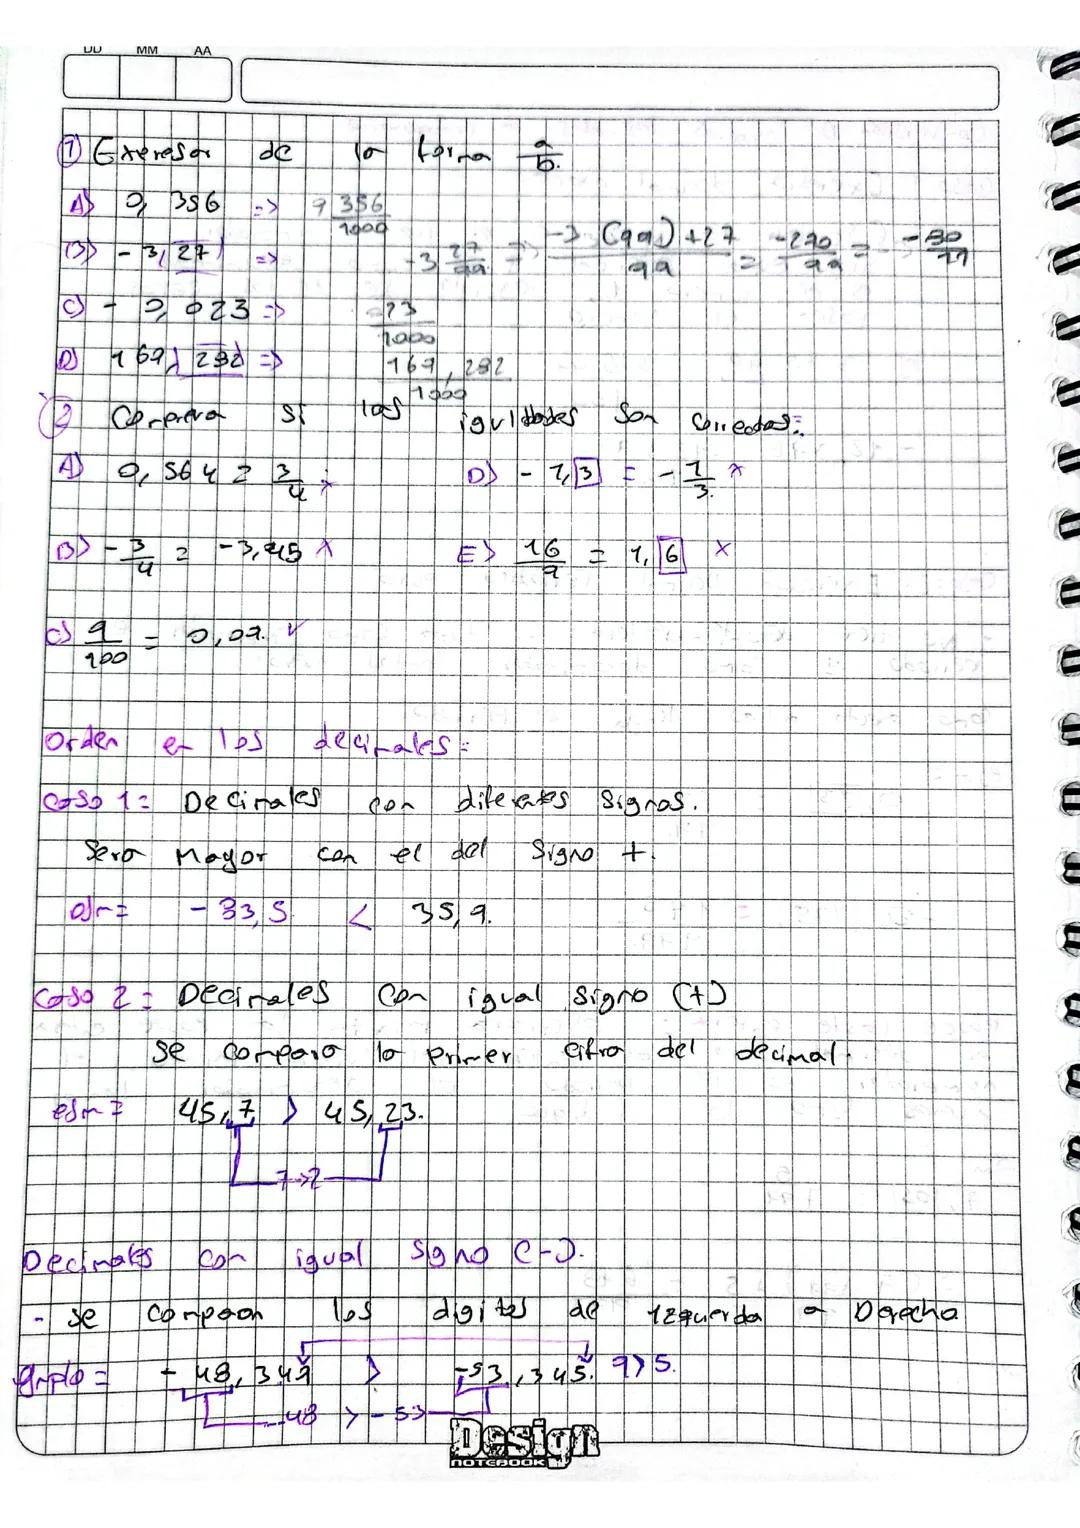 DD MM AA
① Expresar de la forma a/b.
A) 0,356 => 356/1000
B) - 3,27 => -3 27/99 => -3(99)+27/99 = -270/99 = -30/11
C) - 0,023 => 23/1000
D) 169,232 => 169,232/1000
② Comprova si las iguldades son correctas:
A) 0,564 = 3/4 x D) - 1,3 = - 1/3. x
B) - 3/4 = -3,45 x E) 16/9 = 1,6 x
C) 9/100 = 0,09. ✓
Orden en los decimales:
Caso 1: Decimales con diferentes signos.
Sera Mayor con el del signo +.
- 33,5. < 35,9.
Caso 2: Decimales con igual signo (+)
se compara la primer cifra del decimal.
45,7 > 45,23.
7>2
Decimales con igual signo (-).
- se comparan los digitos de izquierda a Derecha
- 48,349 > -53,345. 9>5.
-48 > -53
Design
NOTEBOOK